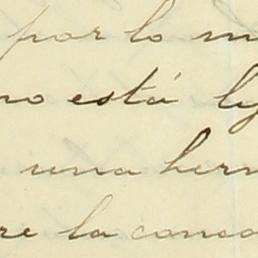 por lo m
no está ly
una her
re la conoc